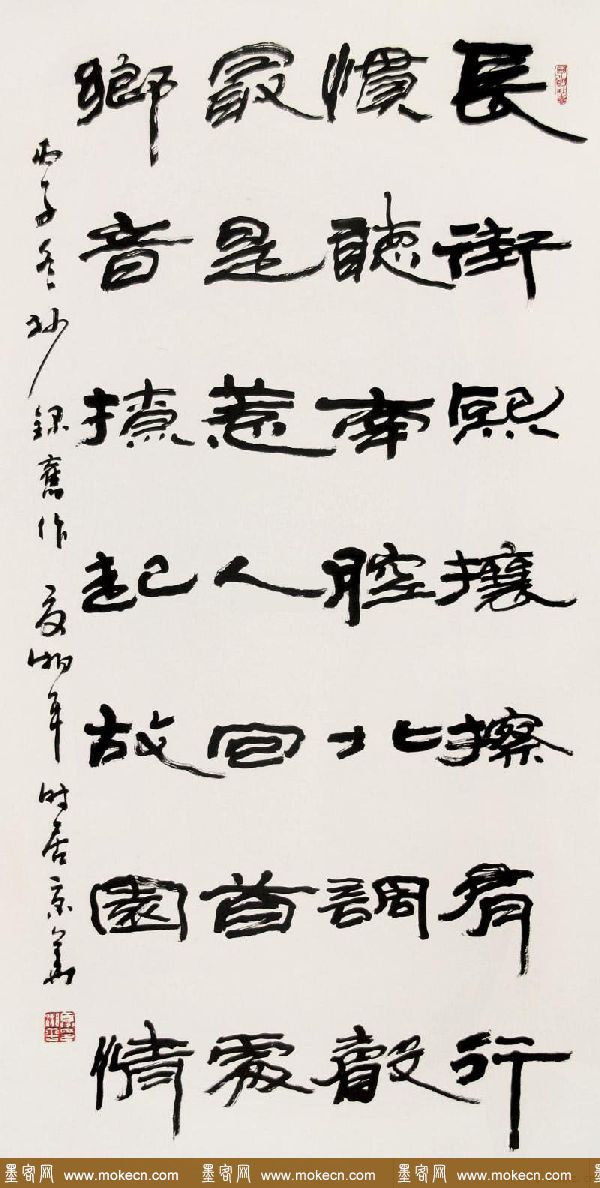 長街熙攘擦肩行
慣聽南腔北調聲
最是惹人回首處
鄉音撩起故園情
丙子冬杪錄舊作 夏湘平时居京華
墨客网 www.mokecn.com 墨客网 www.mokecn.com 墨客网 www.mokecn.com